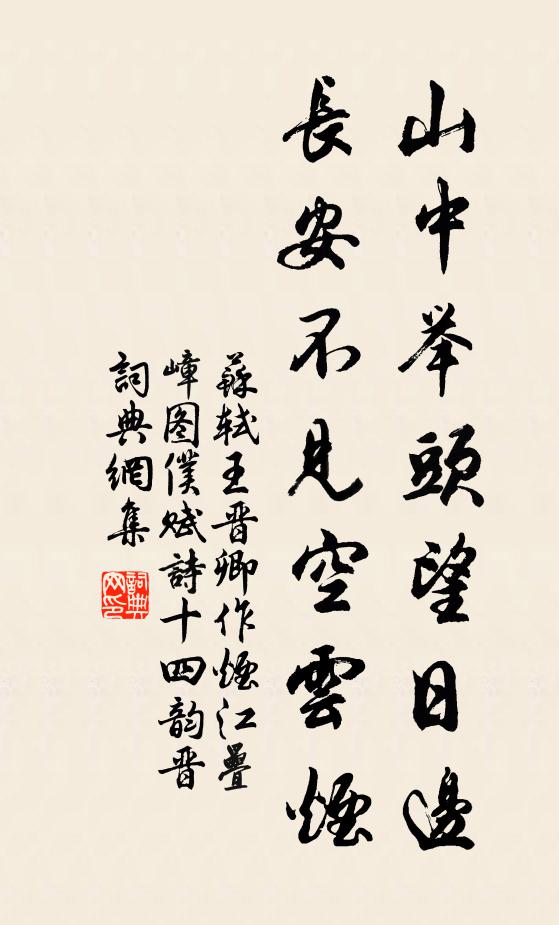 山中举頭望日邊
長安不見空雲煙
蘇軾王晋卿作煙江疊
嶂图僕赋詩十四韵晋
詞典網集
詞典
网印